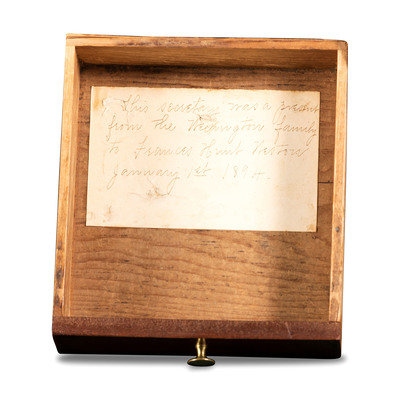 This secretary was a present
from the Washington family
to Frances Hunt
January 1st 1894.